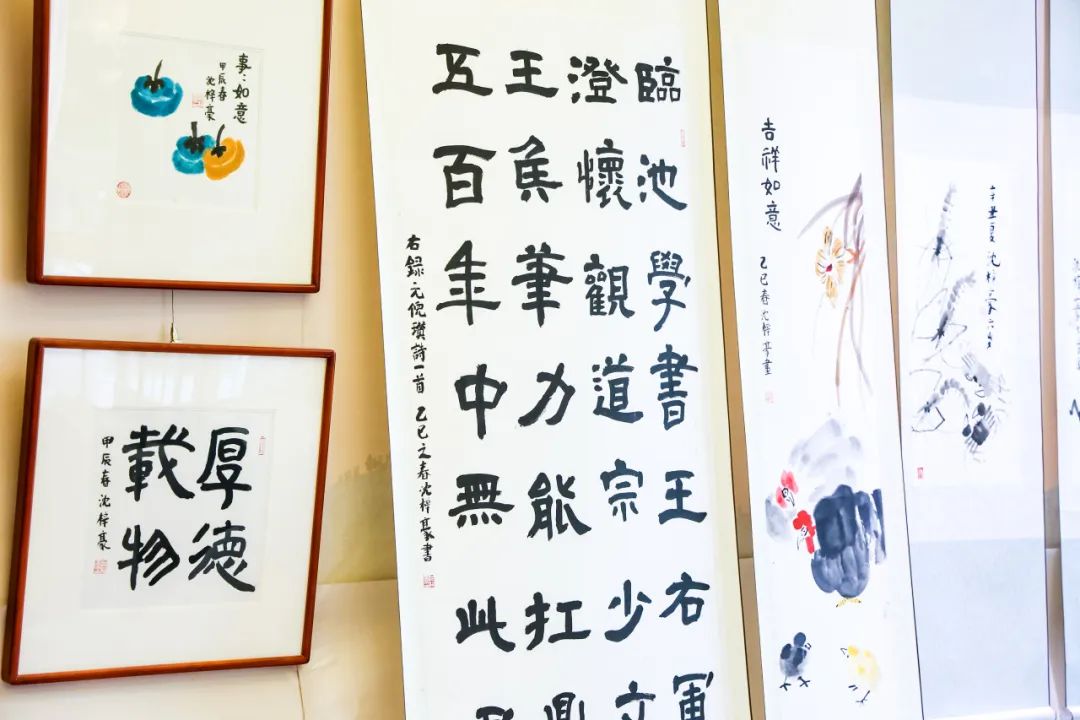 事:如意
甲辰春
沈梓豪
厚德
載物
甲辰春 沈梓豪
臨池學書王右軍
澄懷觀道宗少文
王矦筆力能扛鼎
五百年中無此
右録元倪瓚詩一首 乙巳之春沈梓豪書
吉祥如意
乙巳春沈梓豪畫
辛丑夏沈梓豪六岁